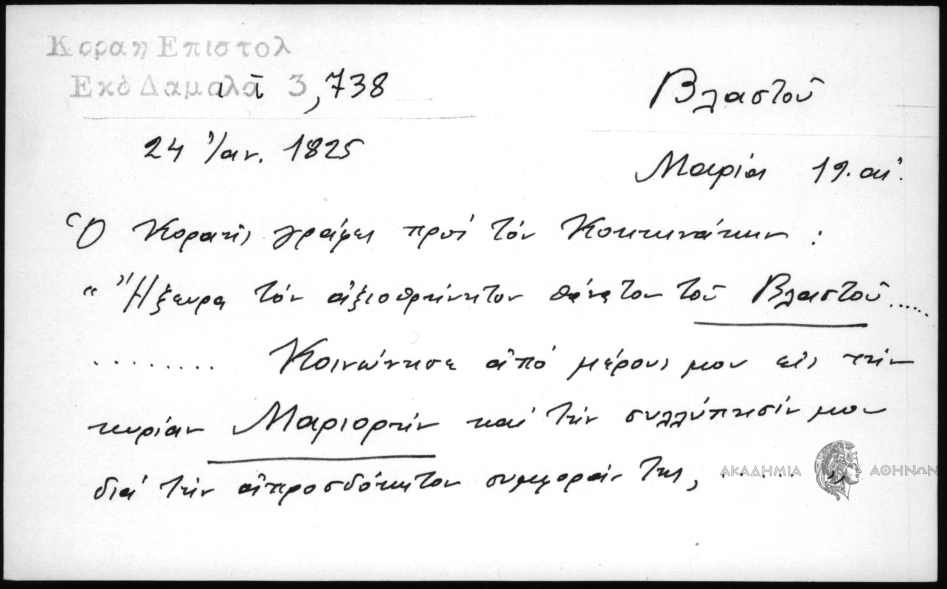 Κοραη Επιστολ
Εκδ Δαμαλά 3, 738
Βλαστοῦ
24 Ἰαν. 1825
Μαρία 19. αἰ.
Ὁ Κοραῆς γράφει πρὸς τὸν Κοκκινάκην :
" Ἤξευρα τὸν ἀξιοθρήνητον θάνατον τοῦ Βλαστοῦ .....
........ Κοινώνησε ἀπὸ μέρους μου εἰς τὴν
κυρίαν Μαριορὴν καὶ τὴν συλλύπησίν μου
διὰ τὴν ἀπροσδόκητον συμφοράν της, ....... "
ΑΚΑΔΗΜΙΑ ΑΘΗΝΩΝ